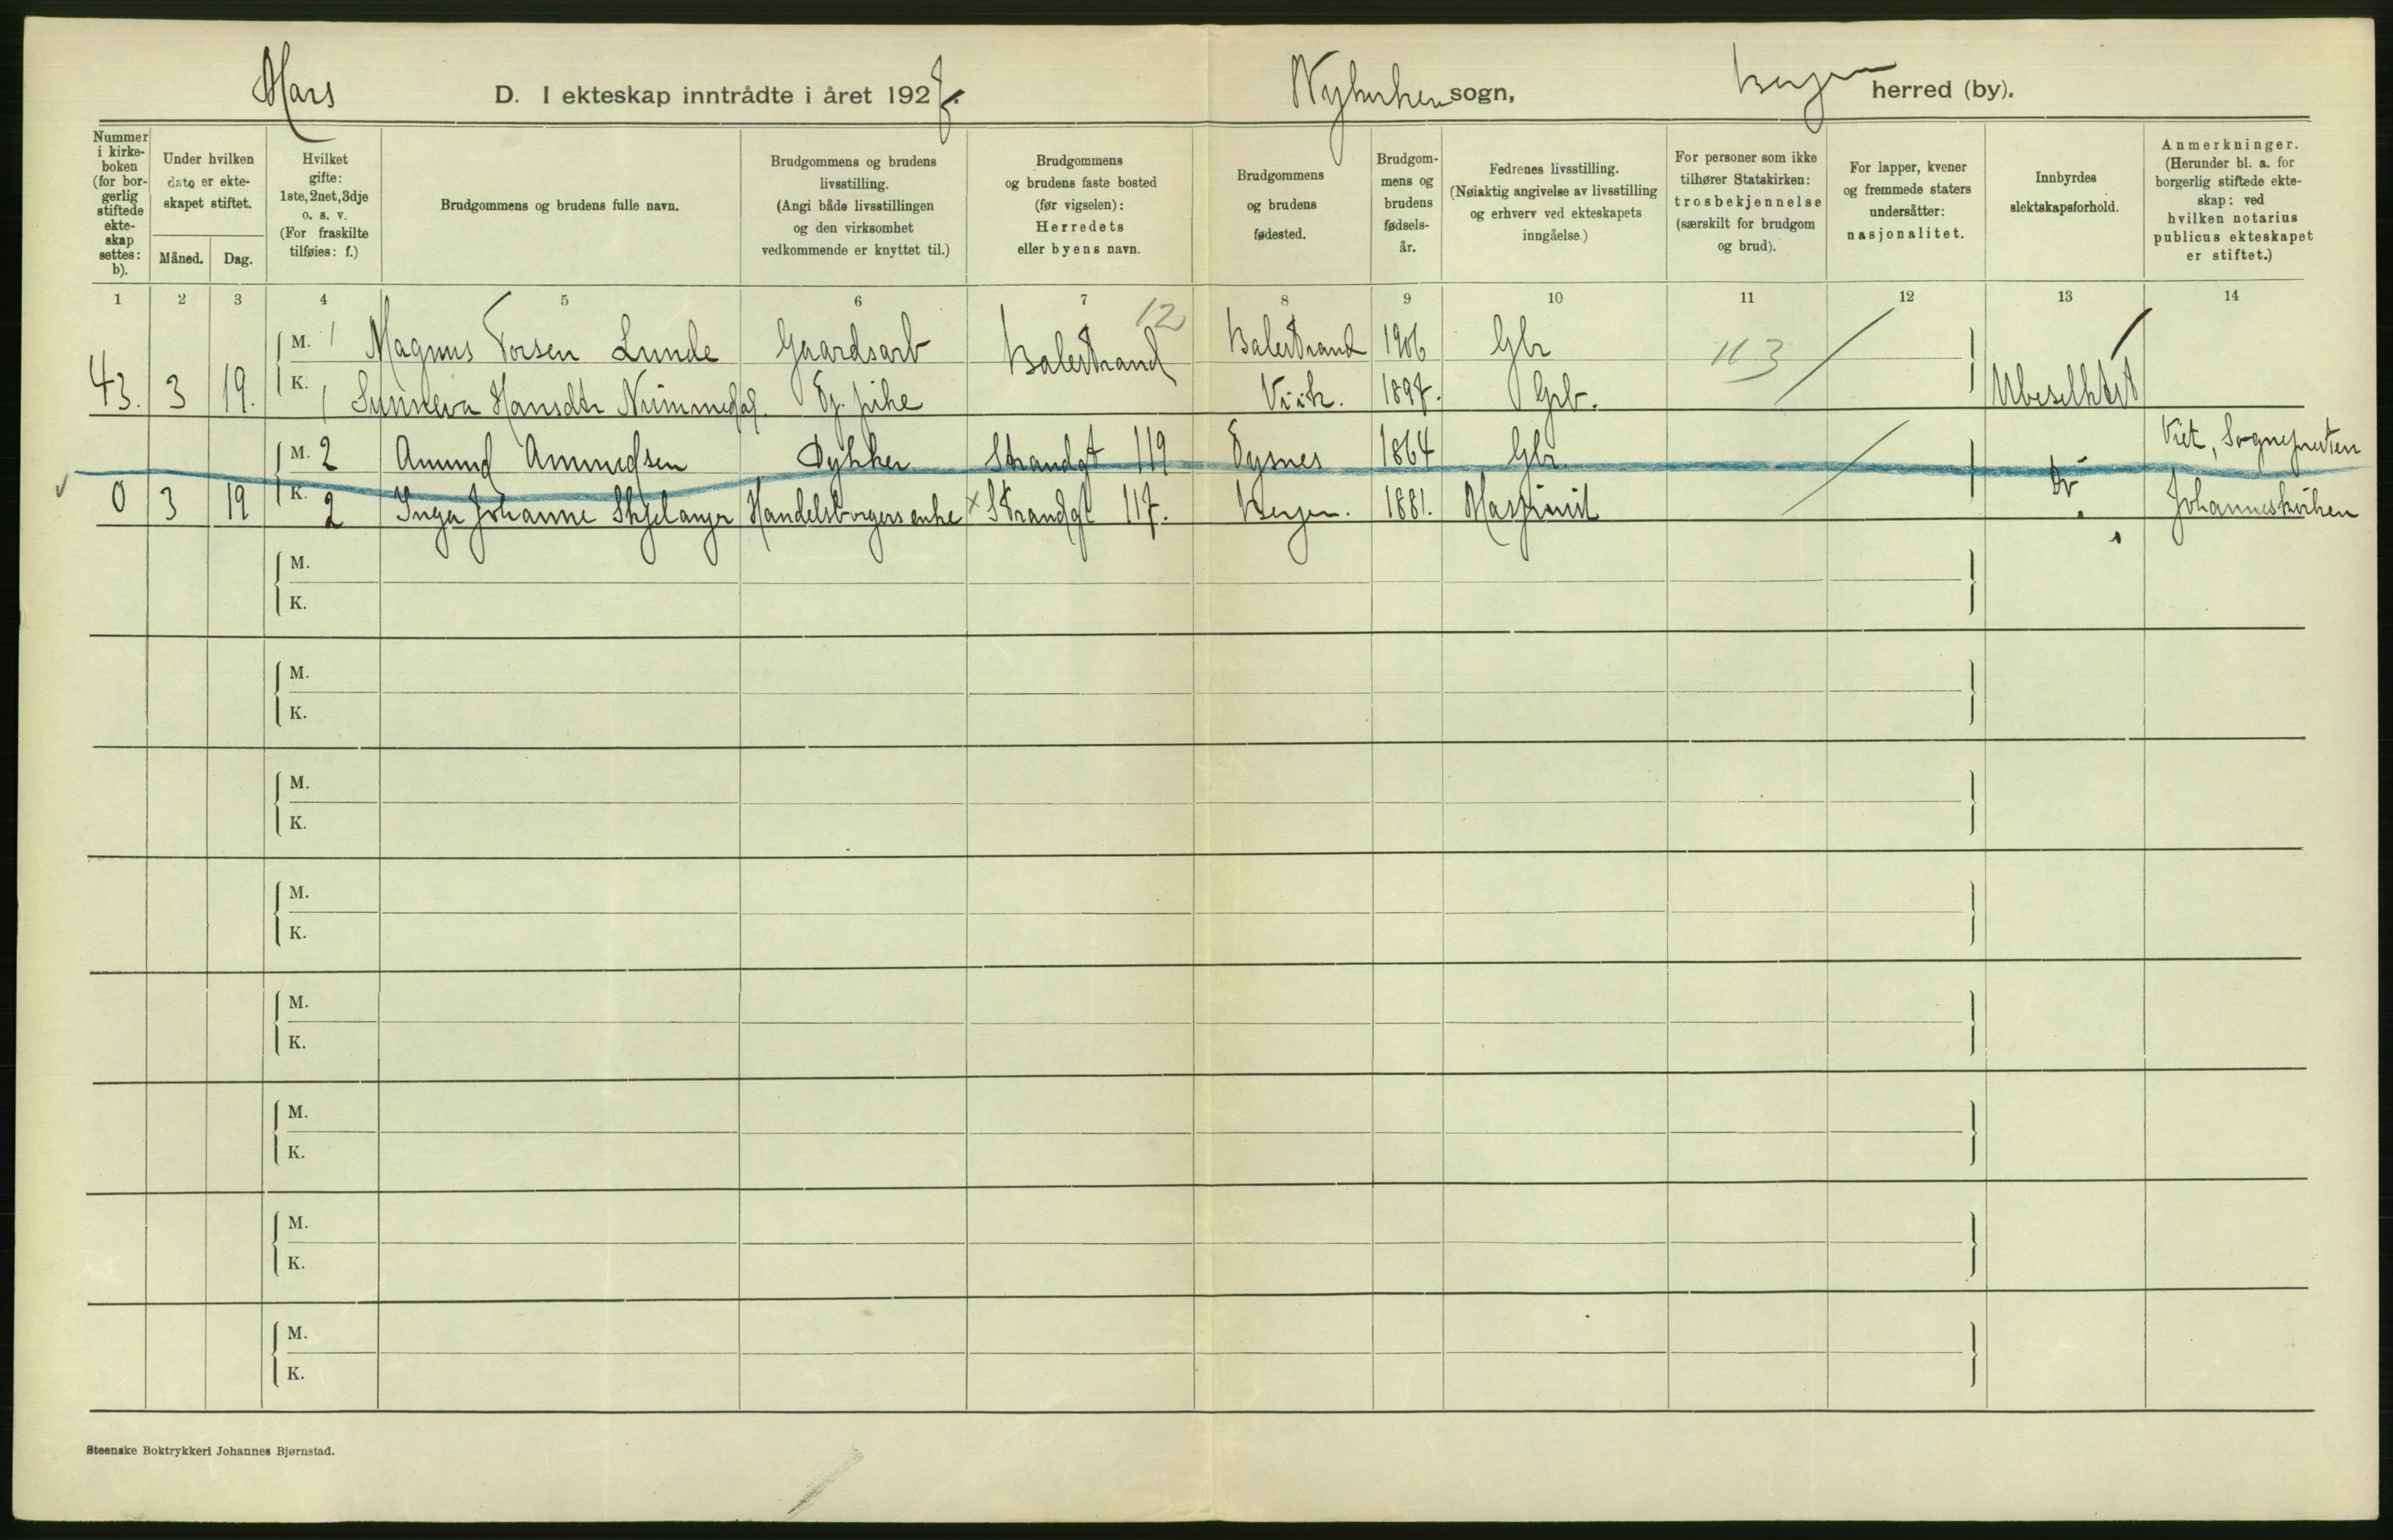 Mars D. I ekteskap inntrådte i året 1927. Nykirken sogn, Bergen herred (by).
Nummer
i kirke-
boken
(for bor-
gerlig
stiftede
ekte-
skap
settes:
b).
Under hvilken
dato er ekte-
skapet stiftet.
Måned. Dag.
Hvilket
gifte:
1ste, 2net, 3dje
o. s. v.
(For fraskilte
tilføies: f.)
Brudgommens og brudens fulle navn.
Brudgommens og brudens
livsstilling.
(Angi både livsstillingen
og den virksomhet
vedkommende er knyttet til.)
Brudgommens
og brudens faste bosted
(før vigselen):
Herredets
eller byens navn.
Brudgommens
og brudens
fødested.
Brudgom-
mens og
brudens
fødsels-
år.
Fedrenes livsstilling.
(Nøiaktig angivelse av livsstilling
og erhverv ved ekteskapets
inngåelse.)
For personer som ikke
tilhører Statskirken:
trosbekjennelse
(særskilt for brudgom
og brud).
For lapper, kvener
og fremmede staters
undersåtter:
nasjonalitet.
Innbyrdes
slektskapsforhold.
Anmerkninger.
(Herunder bl. a. for
borgerlig stiftede ekte-
skap: ved
hvilken notarius
publicus ekteskapet
er stiftet.)
1 2 3 4 5 6 7 8 9 10 11 12 13 14
12
M. 1 Magnus Torsen Lunde Gaardsarb Balestrand Balestrand 1906 Gbr 113
43. 3 19. K. 1 Sunneva Hansdtr Nummedal. Eg. pike Viik. 1897. Grb. Ubeslektet
M. 2 Amund Amundsen Dykker Strandgt 119 Opsnes 1864 Gbr Viet, Sognepresten
0 3 19 K. 2 Inga Johanne Skjelanger Handelsborgers enke × Strandgt 117. Bergen. 1881. Maskinist Do Johanneskirken
M.
K.
M.
K.
M.
K.
M.
K.
M.
K.
M.
K.
M.
K.
M.
K.
Steenske Boktrykkeri Johannes Bjørnstad.